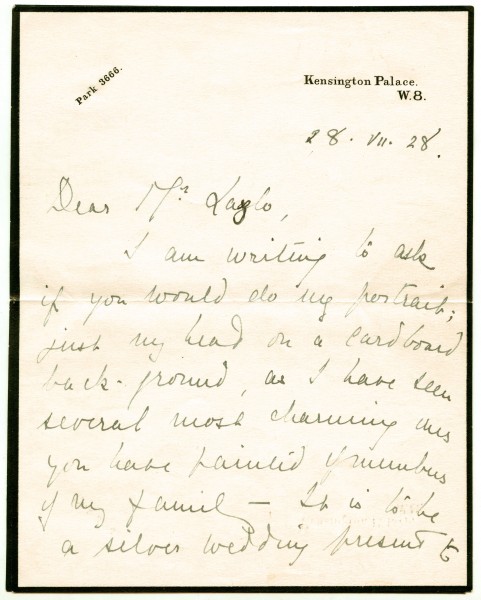 Park 3666.
Kensington Palace.
W.8.
28. VII. 28.
Dear Mr Lazlo,
I am writing to ask
if you would do my portrait;
just my head on a cardboard
back-ground, as I have seen
several most charming ones
you have painted of members
of my family — It is to be
a silver wedding present to